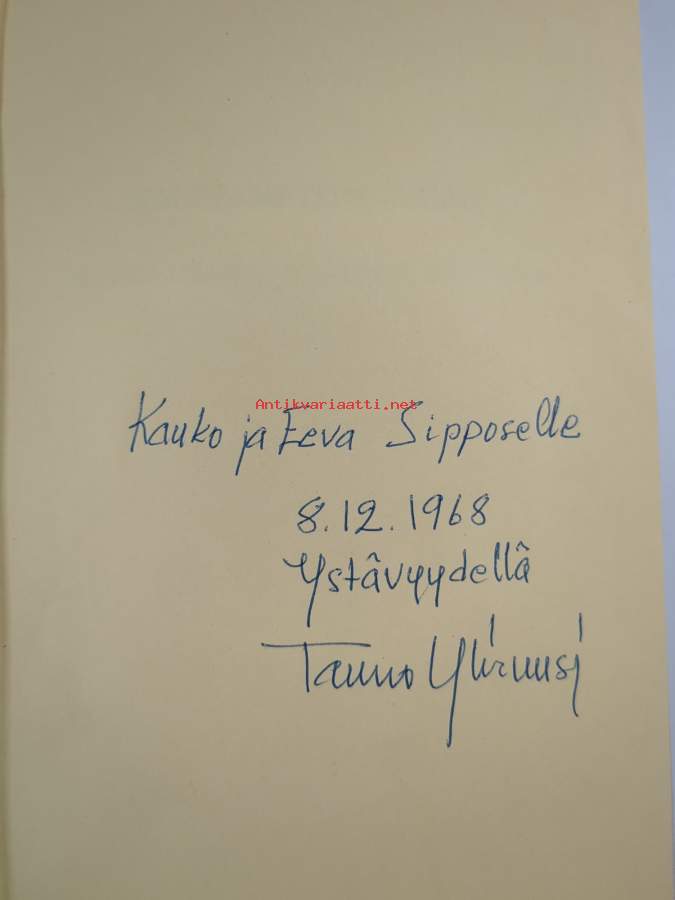 Antikvariaatti.net
Kauko ja Eeva Sipposelle
8.12.1968
Ystävyydellä
Tauno Yliruusi